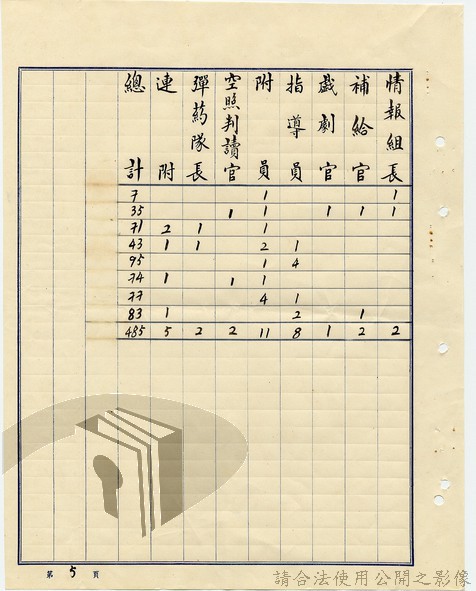 情報組長
補給官
戲劇官
指導員
附員
空照判讀官
彈葯隊長
連附
總計
7 1 1
35 1 1 1 1 1
71 2 1 1
43 1 1 2 1
95 1 4
74 1 1 1
77 4 1
83 1 2 1
485 5 2 2 11 8 1 2 2
第 5 頁
請合法使用公開之影像